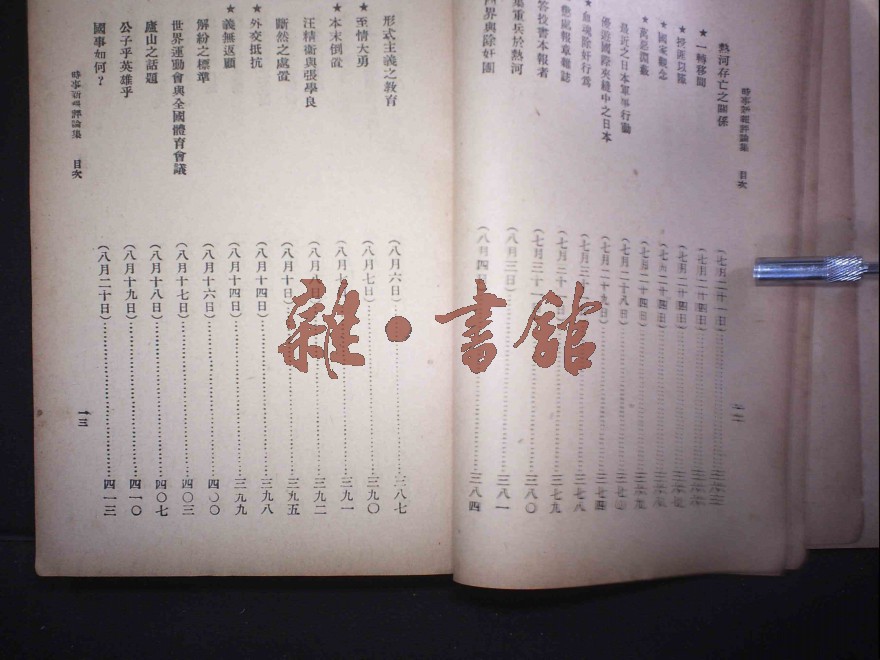 時事新報評論集 目次
熱河存亡之關係(七月二十一日)
★一轉移間(七月二十四日)
★授匪以隙(七月二十四日)
★國家觀念(七月二十四日)
★萬惡閥(七月二十四日)
最近之日本軍事行動(七月二十八日)
優遊國際夾縫中之日本(七月二十九日)三七四
血魂除奸行爲三七八
雜誌三七九
答投書本報者(七月三十一日)三八〇
集重兵於熱河(八月三日)三八一
界與除奸團(八月四日)三八四
形式主義之教育(八月六日)三八七
★至情大勇(八月七日)三九〇
★本末倒置三九一
汪精衞與張學良三九二
斷然之處置(八月十日)三九五
★外交抵抗(八月十四日)三九八
★義無返顧(八月十四日)三九九
解紛之標準(八月十六日)四〇〇
世界運動會與全國體育會議(八月十七日)四〇三
廬山之話題(八月十八日)四〇七
公子乎英雄乎(八月十九日)四一〇
國事如何?(八月二十日)四一三
時事新報評論集 目次
一三
雜·書館